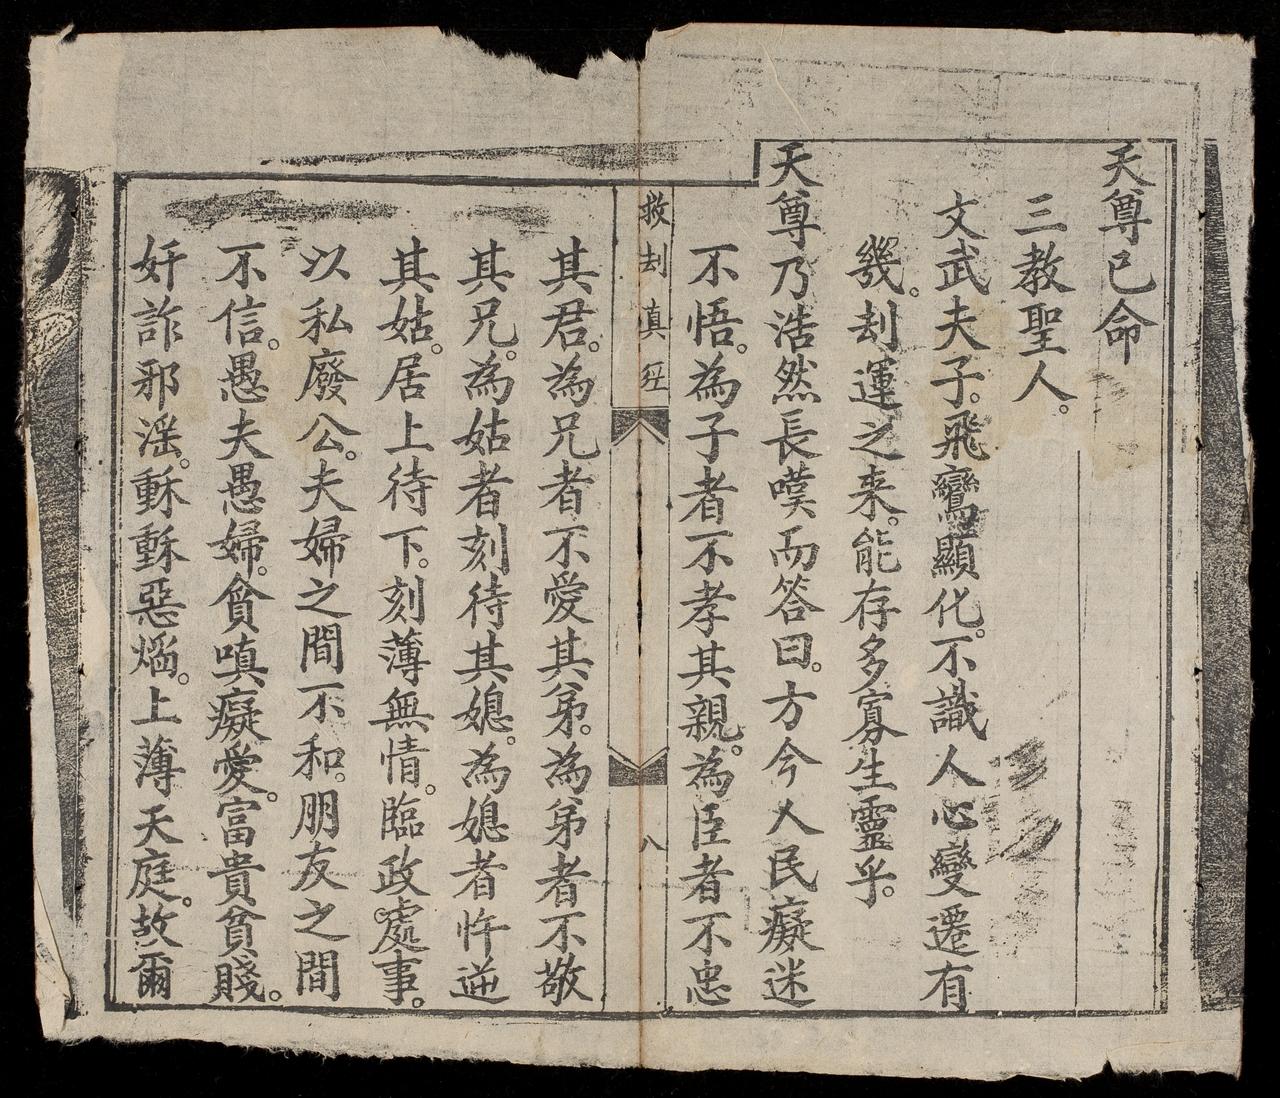 天尊已命
三教聖人。
文武夫子。飛鸞顯化。不識人心變遷有
幾。刦運之来。能存多寡生靈乎。
天尊乃浩然長嘆而答曰。方今人民癡迷
不悟。為子者不孝其親。為臣者不忠
救刦真経
八
其君。為兄者不愛其弟。為弟者不敬
其兄。為姑者刻待其媳。為媳者忤逆
其姑。居上待下。刻薄無情。臨政處事。
以私廢公。夫婦之間不和。朋友之間
不信。愚夫愚婦。貪嗔癡愛。富貴貧賤。
奸詐邪滛。穌穌惡熖。上薄天庭。故爾